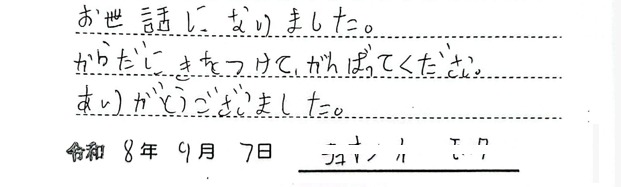 お世話になりました。
からだにきをつけて、がんばってください。
ありがとうございました。
令和 8年 9月 7日